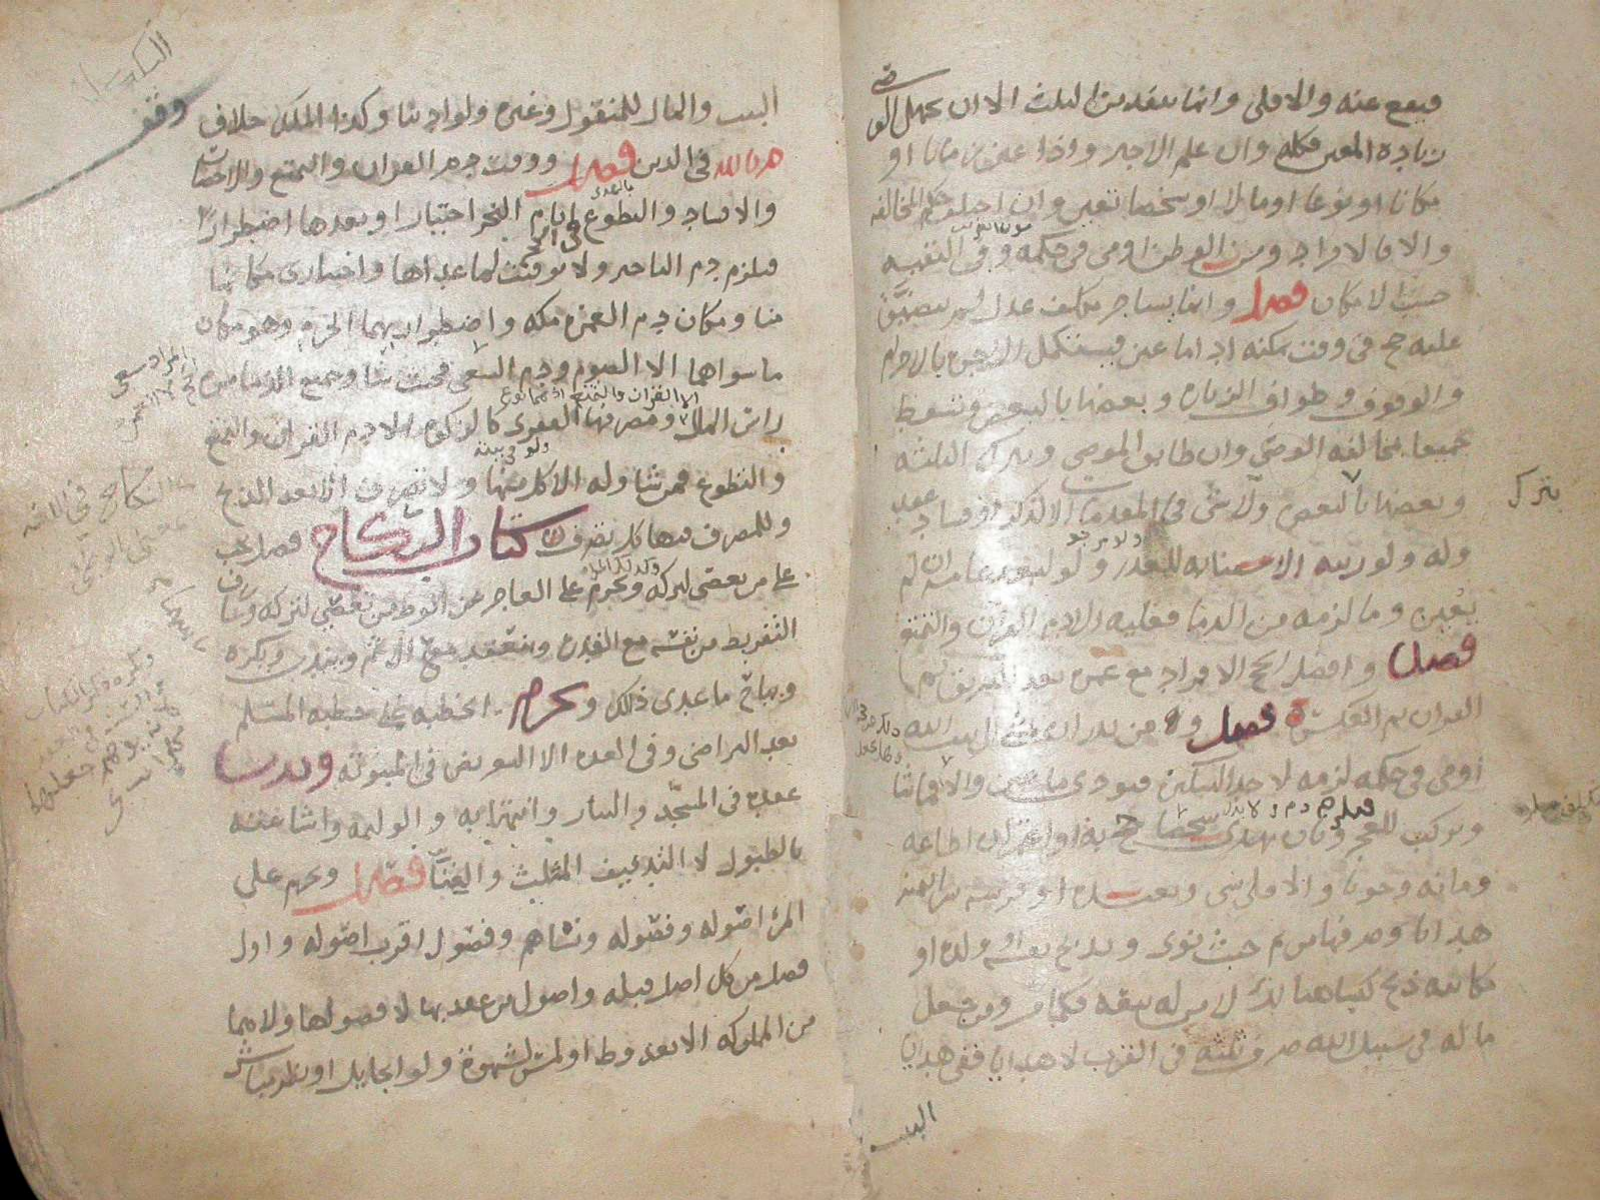 فيقع عنه والا فلي وانما ينفذ من الثلث الا ان يجهل الوصي
زيادة المعين فكله وان علم الاجير واذا عين زمانا او
مكانا او نوعا او مالا او شخصا تعين وان اختلف حكم المخالفه
والا فالافراد ومن الوطن او من في حكمه وفي البقيه
حسب الامكان فصل وانما يستاجر مكلف عدل لم يتضيق
عليه حج في وقت يمكنه اداء ما عين فيستكمل الاجره بالاحرام
والوقوف وطواف الزياره وبعضها بالبعض وتسقط
جميعا بمخالفه الوصي وان طابق الموصي وبترك الثلثه
وبعضها بالبعض ولا شي في المقدمات الا لذكر او فساد عقد
وله ولورثته الاستنابه للعذر ولو لبعد عامه ان لم
يعين وما لزمه من الدما فعليه الا دم القران والتمتع
فصل وافضل الحج الافراد مع عمره بعد التشريق ثم
القران ثم العكس فصل ومن نذر ان يمشي الى بيت الله
او من في حكمه لزمه لاحد النسكين فيودي ما عين والا فما شا
ويركب للعجز فيلزم دم وبان يهدي شخصا حج به او اعتمر ان اطاعه
ومانه وجوبا والا فلا شي وبعبده او فرسه شرا بثمنه
هدايا وصرفها من ثم حيث نوى وبذبح نفسه او ولده او
مكاتبه ذبح كبشا هنالك لا من له بيعه فكما مر ومن جعل
ماله في سبيل الله صرف ثلثه في القرب لا هدايا ففي هدايا
البيت
بترك
وقف
البيت والمال للمنقول وغيره ولو دينا وكذا الملك خلاف
م بالله في الدين فصل ووقت دم القران والتمتع والاحصار
والافساد والتطوع بالهدي ايام النحر اختيارا وبعدها اضطرارا
في الحج
فيلزم دم التاخير ولا توقيت لما عداها واختياري مكانها
منا ومكان دم العمره مكه واضطواريهما الحرم وهو مكان
ما سواهما الا الصوم ودم السعي فحيث شا وجميع الدما من
الا القران والتمتع
راس المال ومصرفها الفقرى كالزكوه الا دم القران والتمتع
والتطوع فمن شا وله الاكل منها ولا تصرف الا بعد الذبح
وللمصرف فيها كل تصرف كتاب النكاح فصل يجب
على من يعصي لتركه ويحرم على العاجز عن الوطء من تعصي لتركه
التفريط من نفسه مع القدره وينعقد مع الاثم ويندب ويكره
ويباح ما عدى ذلك ويحرم الخطبه على خطبه المسلم
بعد التراضي وفي العده الا التعريض في المبتوته وندب
عقده في المسجد والنثار وانتهابه والوليمه واشاعته
بالطبول لا التدفيف المثلث والغنا فصل ويحرم على
المرء اصوله وفصوله ونساهم وفصول اقرب اصوله واول
فصل من كل اصل قبله واصول من عقد بها لا فصولها ولا هما
من المملوكه الا بعد وطء او لمس لشهوة ولو بحايل او نظر مباشر